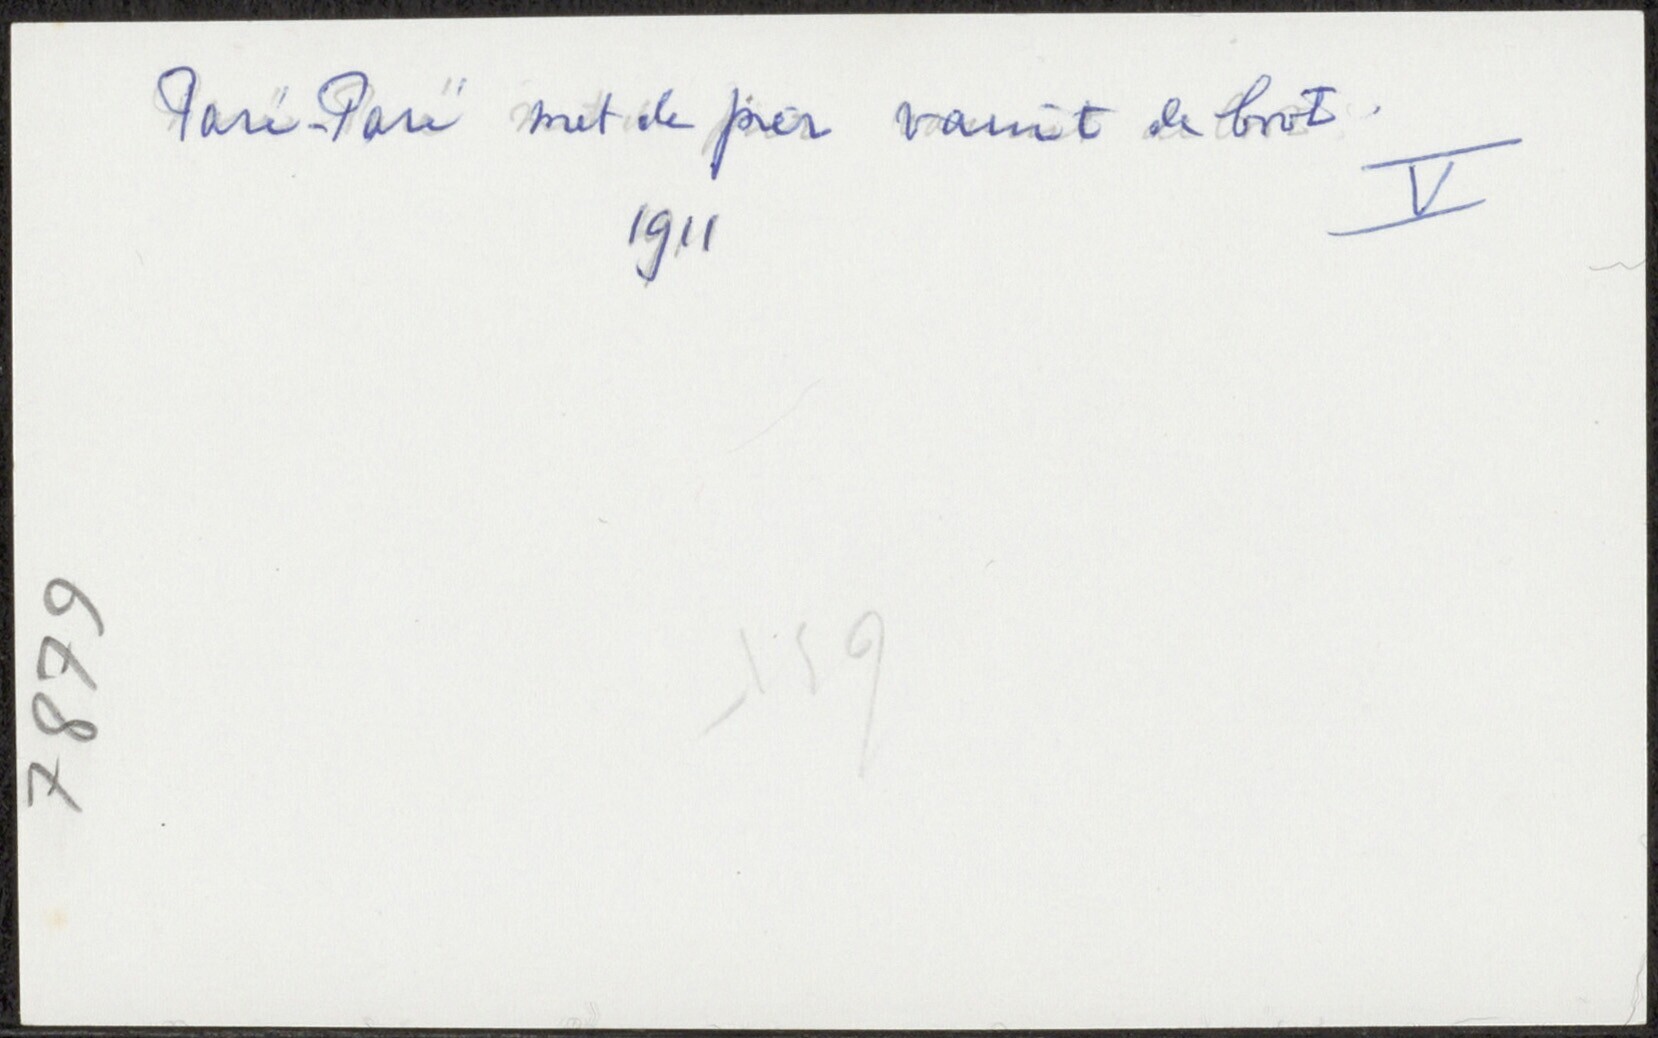 Paré-Paré met de pier vanuit de boot.
V
1911
7879
159